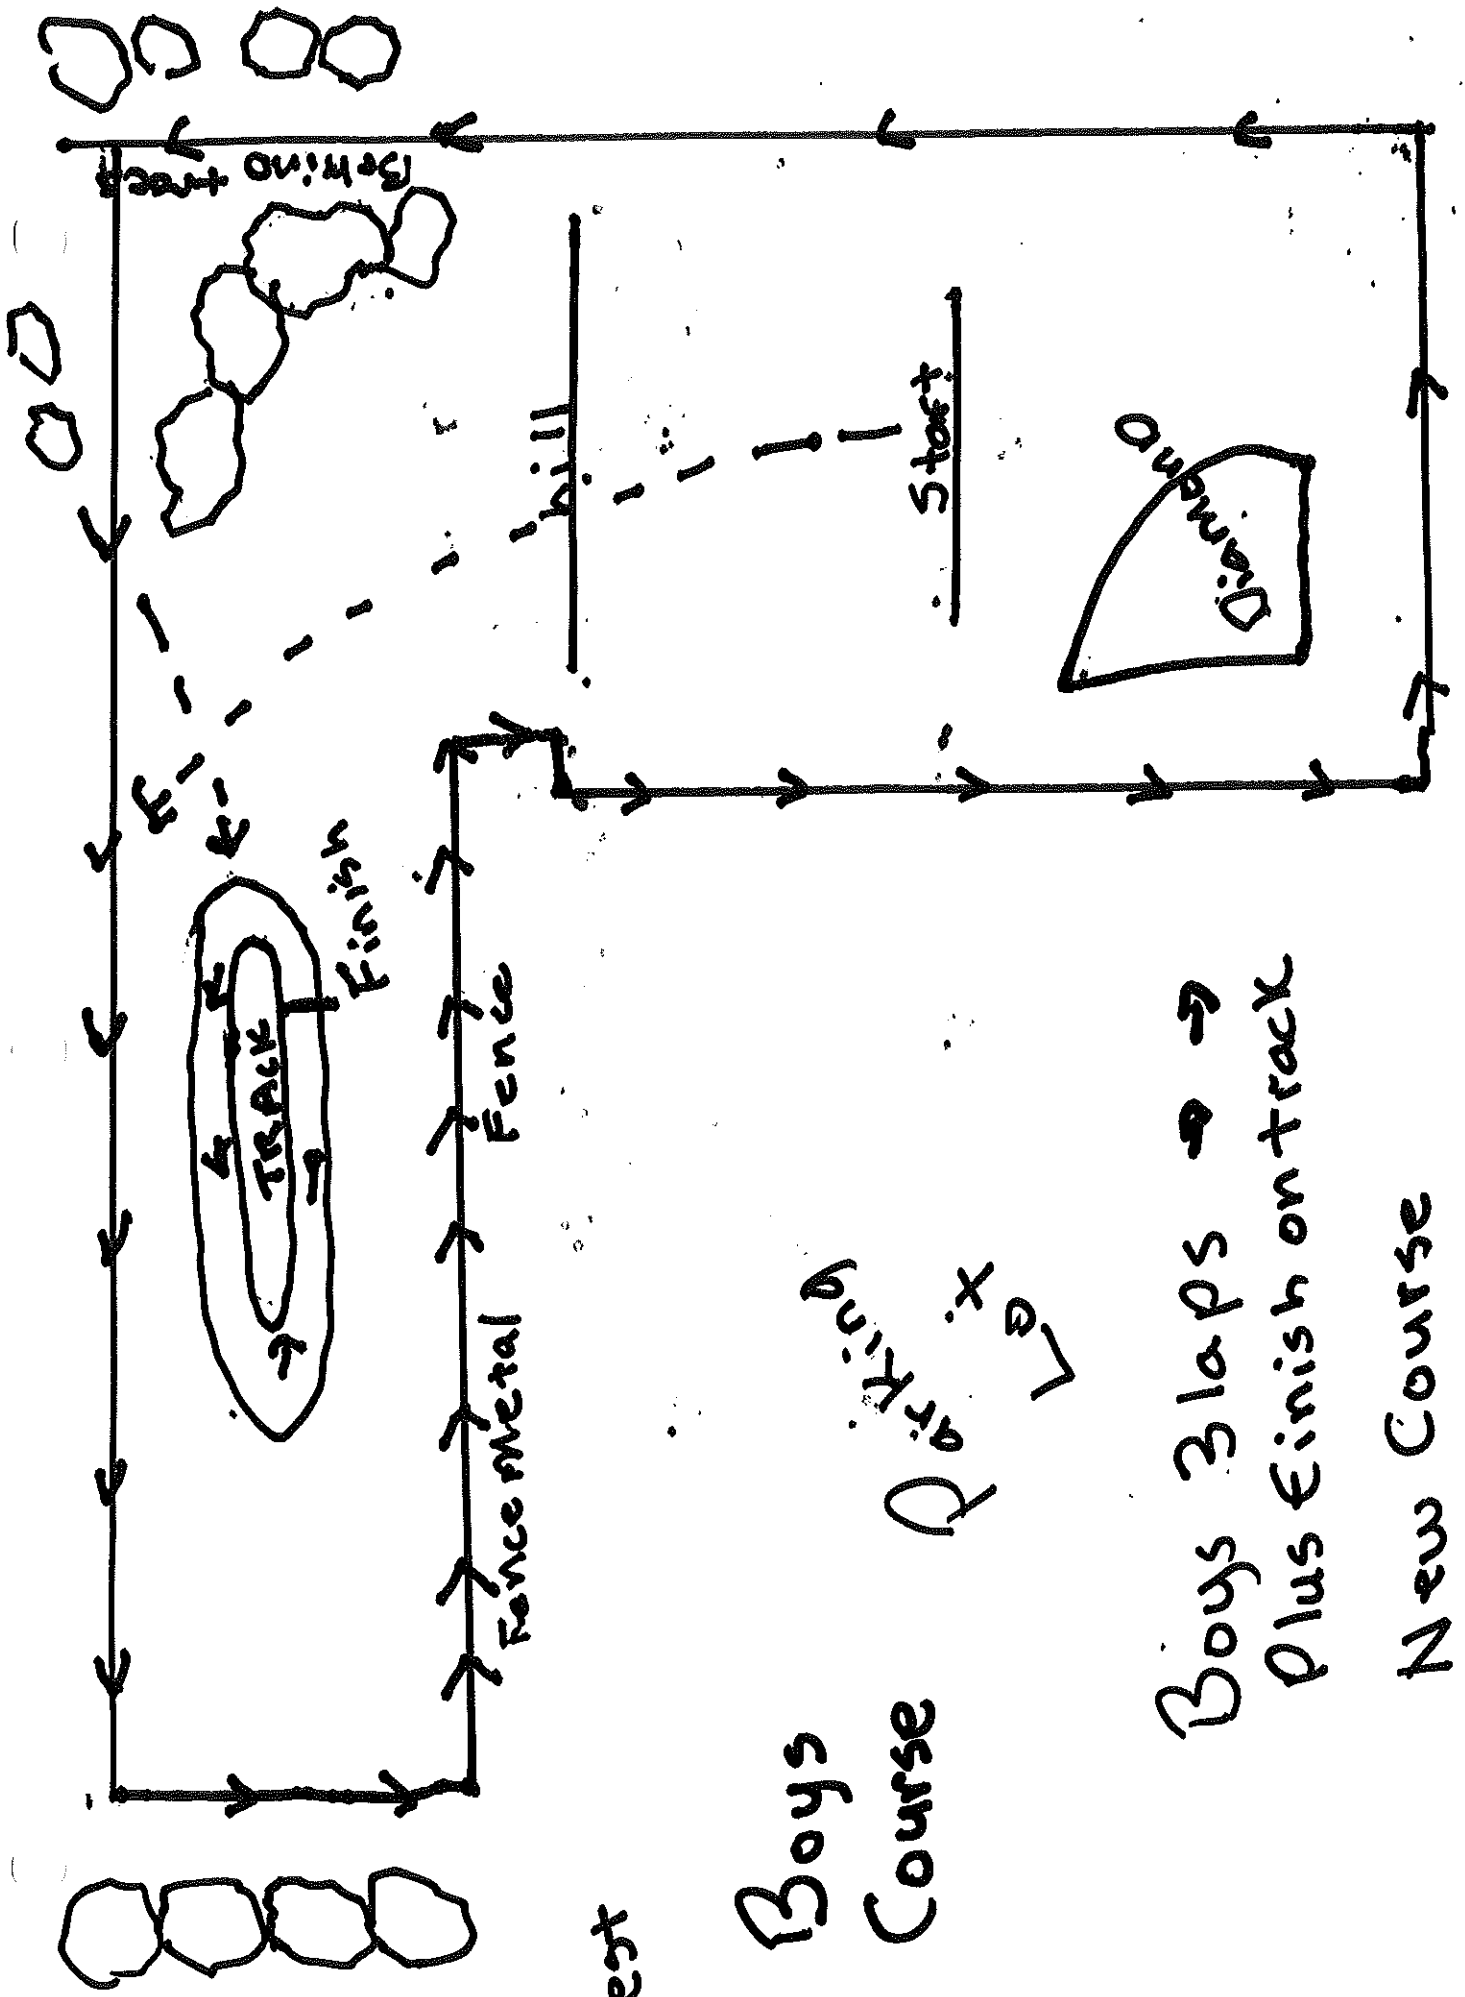 Behind trees
hill
Start
Diamond
Finish
TRACK
Fence
Fence Metal
Parking
Lot
Boys
Course
Boys 3 laps
Plus Finish on track
New Course